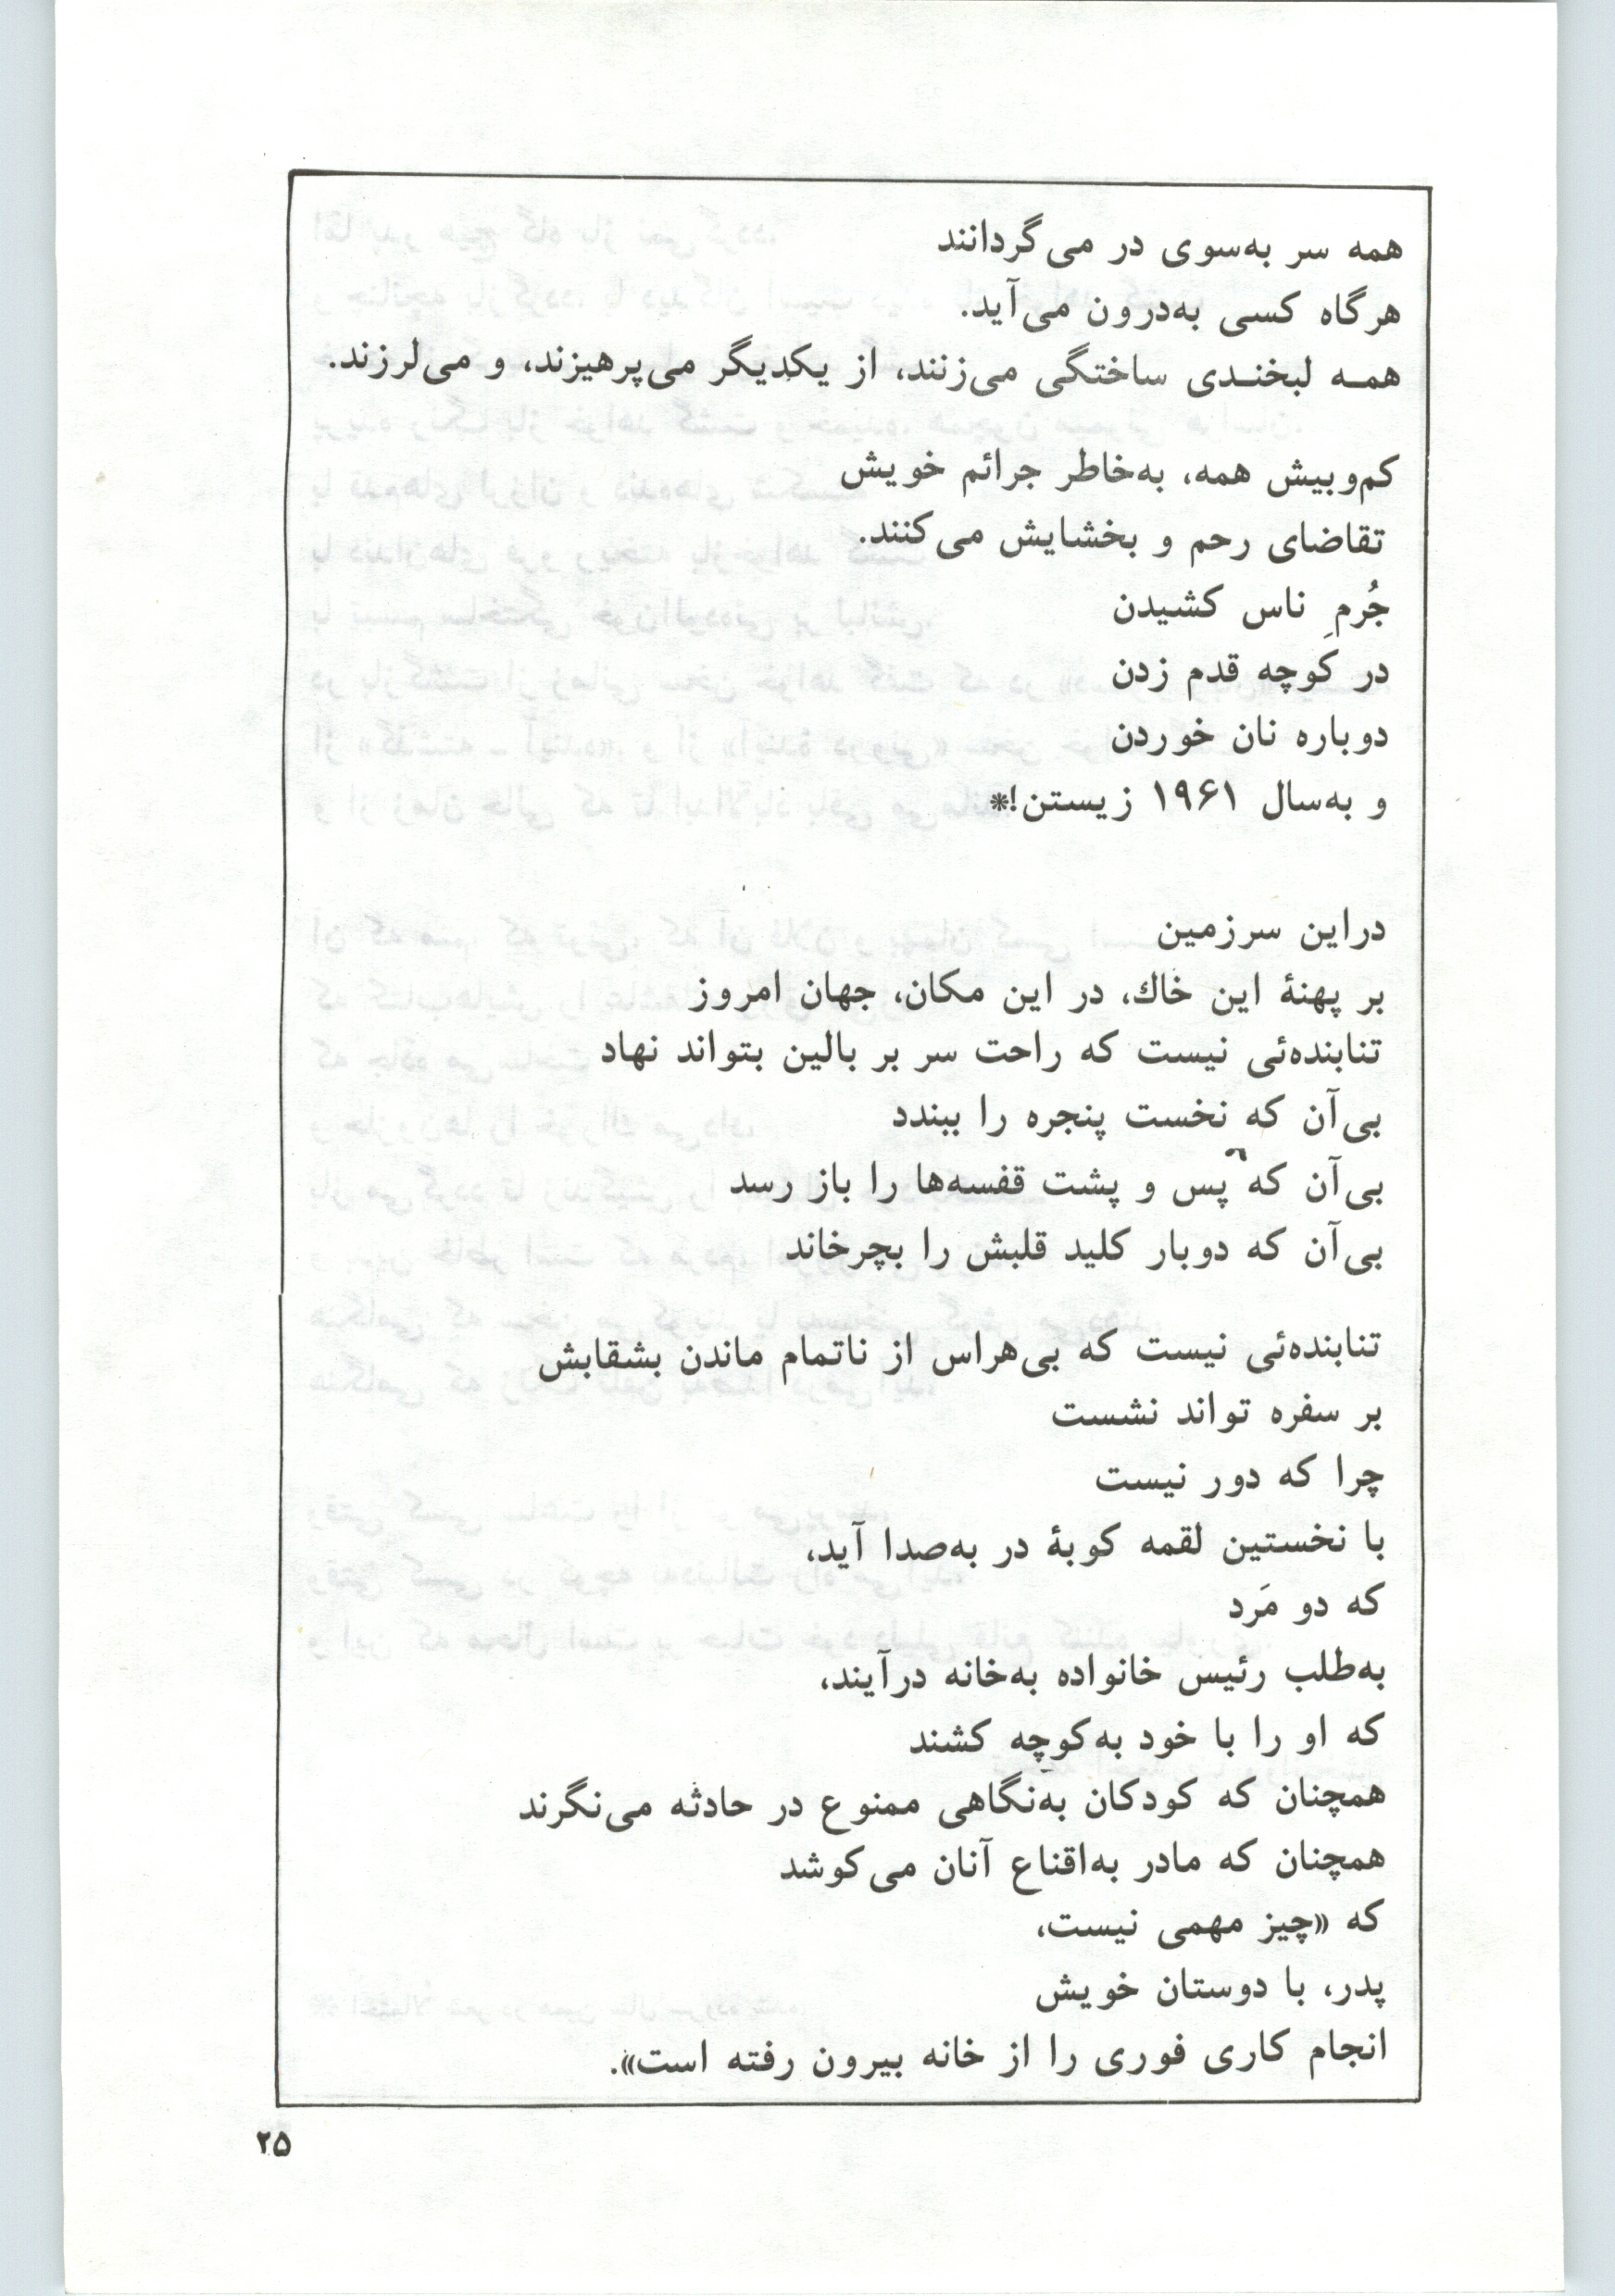 همه سر به‌سوی در می‌گردانند
هرگاه کسی به‌درون می‌آید.
همـه لبخنـدی ساختگی می‌زنند، از یکدیگر می‌پرهیزند، و می‌لرزند.
کم‌وبیش همه، به‌خاطر جرائم خویش
تقاضای رحم و بخشایش می‌کنند.
جُرمِ ناس کشیدن
در کوچه قدم زدن
دوباره نان خوردن
و به‌سال ۱۹۶۱ زیستن!*
دراین سرزمین
بر پهنهٔ این خاك، در این مکان، جهان امروز
تنابنده‌ئی نیست که راحت سر بر بالین بتواند نهاد
بی‌آن که نخست پنجره را ببندد
بی‌آن که پس و پشت قفسه‌ها را باز رسد
بی‌آن که دوبار کلید قلبش را بچرخاند
تنابنده‌ئی نیست که بی‌هراس از ناتمام ماندن بشقابش
بر سفره تواند نشست
چرا که دور نیست
با نخستین لقمه کوبهٔ در به‌صدا آید،
که دو مَرد
به‌طلب رئیس خانواده به‌خانه درآیند،
که او را با خود به‌کوچه کشند
همچنان که کودکان به‌نگاهی ممنوع در حادثه می‌نگرند
همچنان که مادر به‌اقناع آنان می‌کوشد
که «چیز مهمی نیست،
پدر، با دوستان خویش
انجام کاری فوری را از خانه بیرون رفته است».
۲۵